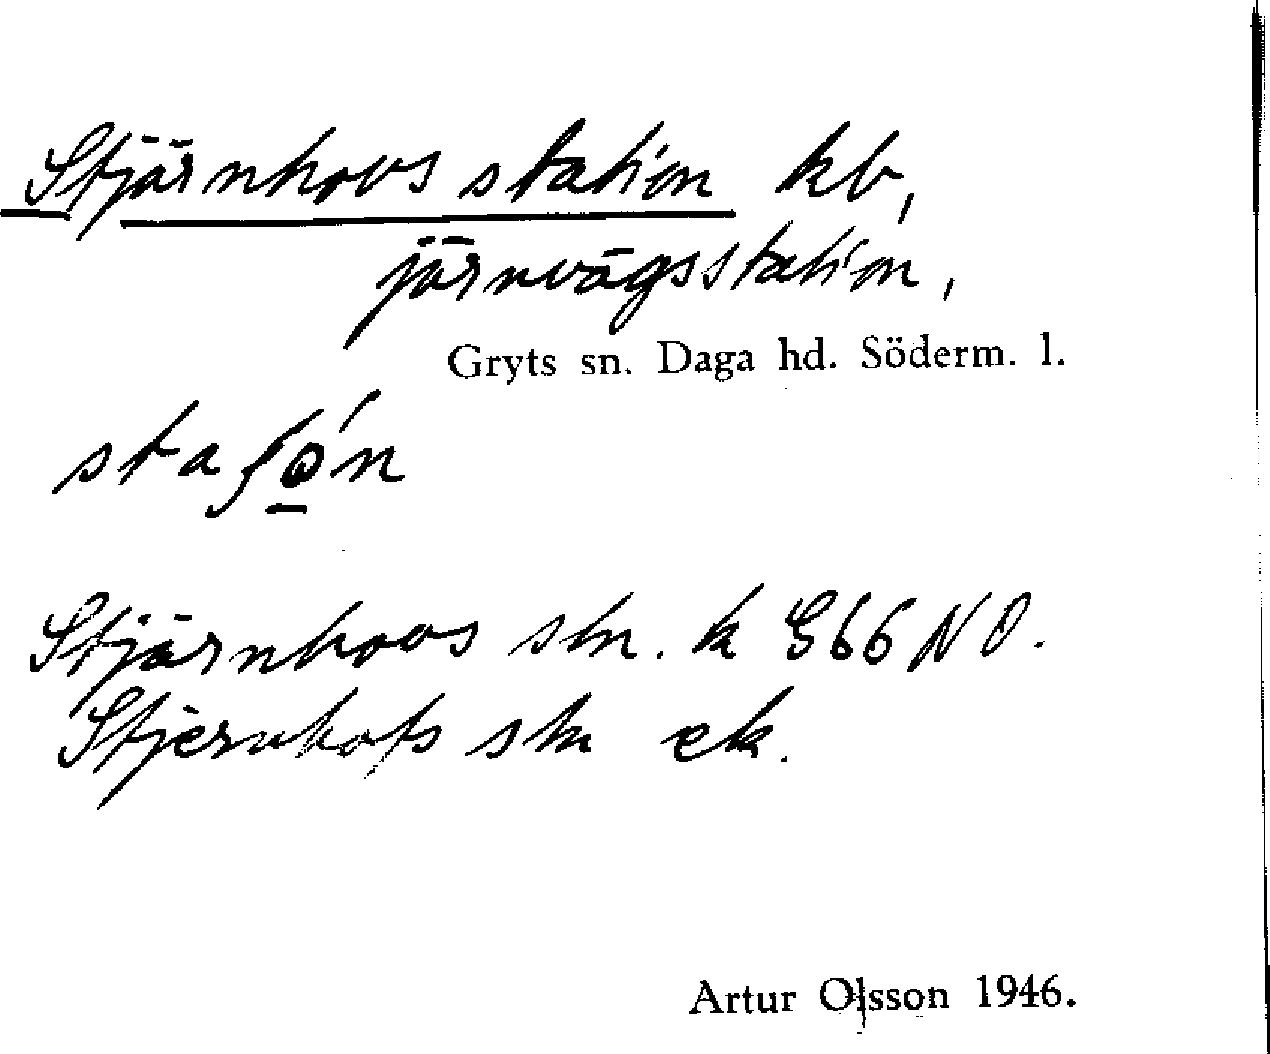 Stjärnhovs station kb,
järnvägsstation,
Gryts sn. Daga hd. Söderm. l.
staʃo̲´n
Stjärnhovs stn. k G66 NO.
Stjernhofs stn ek.
Artur Olsson 1946.